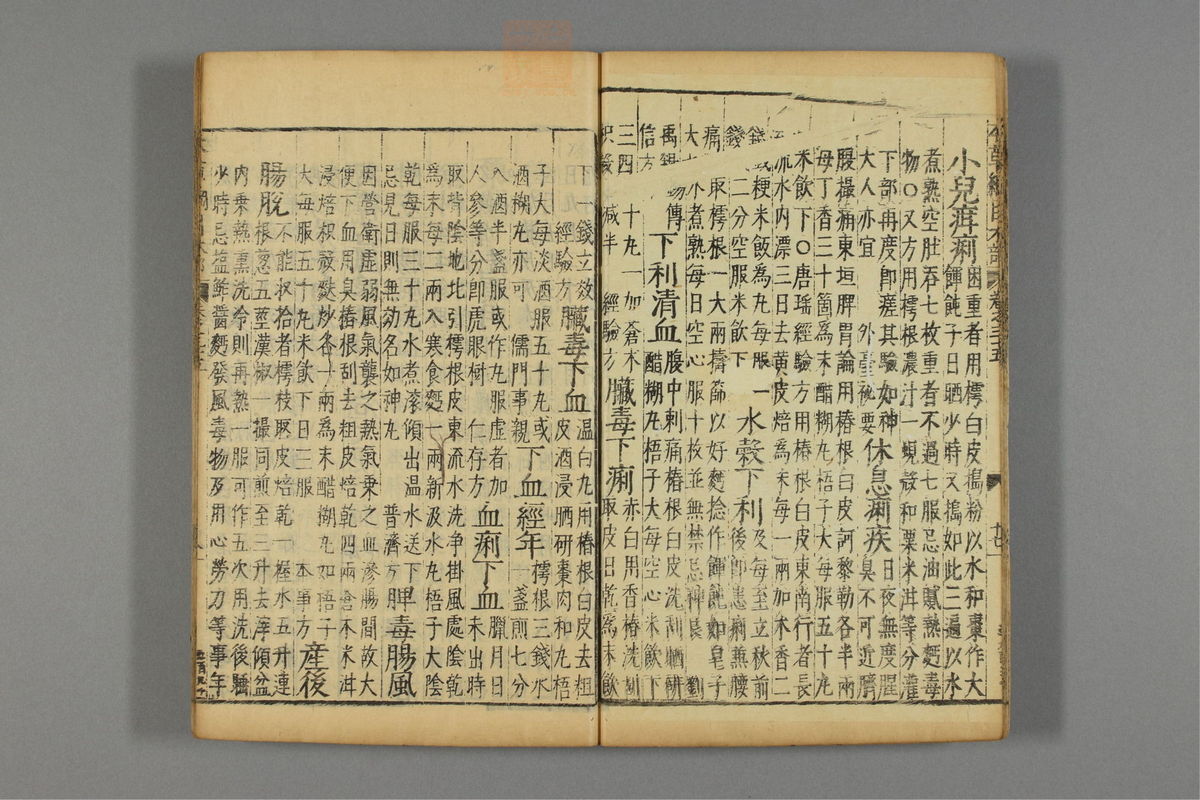 小兒疳痢困重者用樗白皮搗粉以水和棗作大
餛飩子日晒少時又搗如此三遍以水
煮熟空肚吞七枚重者不過七服忌油膩熱麪毒
物〇又方用樗根濃汁一蜆殼和粟米泔等分灌
下部再度卽瘥其驗如神
大人亦宜 外臺秘要 休息痢疾日夜無度腥
臭不可近臍
腹撮痛東垣脾胃論用椿根白皮訶黎勒各半兩
母丁香三十箇爲末醋糊丸梧子大每服五十丸
米飲下〇唐瑤經驗方用椿根白皮東南行者長
流水內漂三日去黃皮焙爲末每一兩加木香二
粳米飯爲丸每服一
錢二分空服米飲下 水穀下利及每至立秋前
後卽患痢兼腰
痛取樗根一大兩擣篩以好麪捻作餛飩如皂子
大水煮熟每日空心服十枚並無禁忌神良 劉
禹錫傳
信方 下利清血腹中刺痛椿根白皮洗刮晒研
醋糊丸梧子大每空心米飲下
三四十丸一加蒼朮
枳殼減半 經驗方 臟毒下痢赤白用香椿洗刮
取皮日乾爲末飲
下一錢立效
經驗方 臟毒下血溫白丸用椿根白皮去粗
皮酒浸晒研棗肉和丸梧
子大每淡酒服五十丸或
酒糊丸亦可 儒門事親 下血經年樗根三錢水
一盞煎七分
入酒半盞服或作丸服虛者加
人參等分卽虎眼樹 仁存方 血痢下血臘月日
未出時
取背陰地北引樗根皮東流水洗淨掛風處陰乾
爲末每二兩入寒食麪一兩新汲水丸梧子大陰
乾每服三十丸水煮滾傾出溫水送下
忌見日則無効名如神丸 普濟方 脾毒腸風
因營衛虛弱風氣襲之熱氣乘之血滲腸間故大
便下血用臭椿根刮去粗皮焙乾四兩倉米泔
浸焙枳殼麩炒各一兩爲末醋糊丸如梧子
大每服五十丸米飲下日三服 本事方 產後
腸脫不能收拾者樗枝取皮焙乾一握水五升連
根葱五莖漢椒一撮同煎至三升去滓傾盆
內乘熱熏洗冷則再熱一服可作五次用洗後睡
少時忌鹽鮓醬麪發風毒物及用心勞力等事年